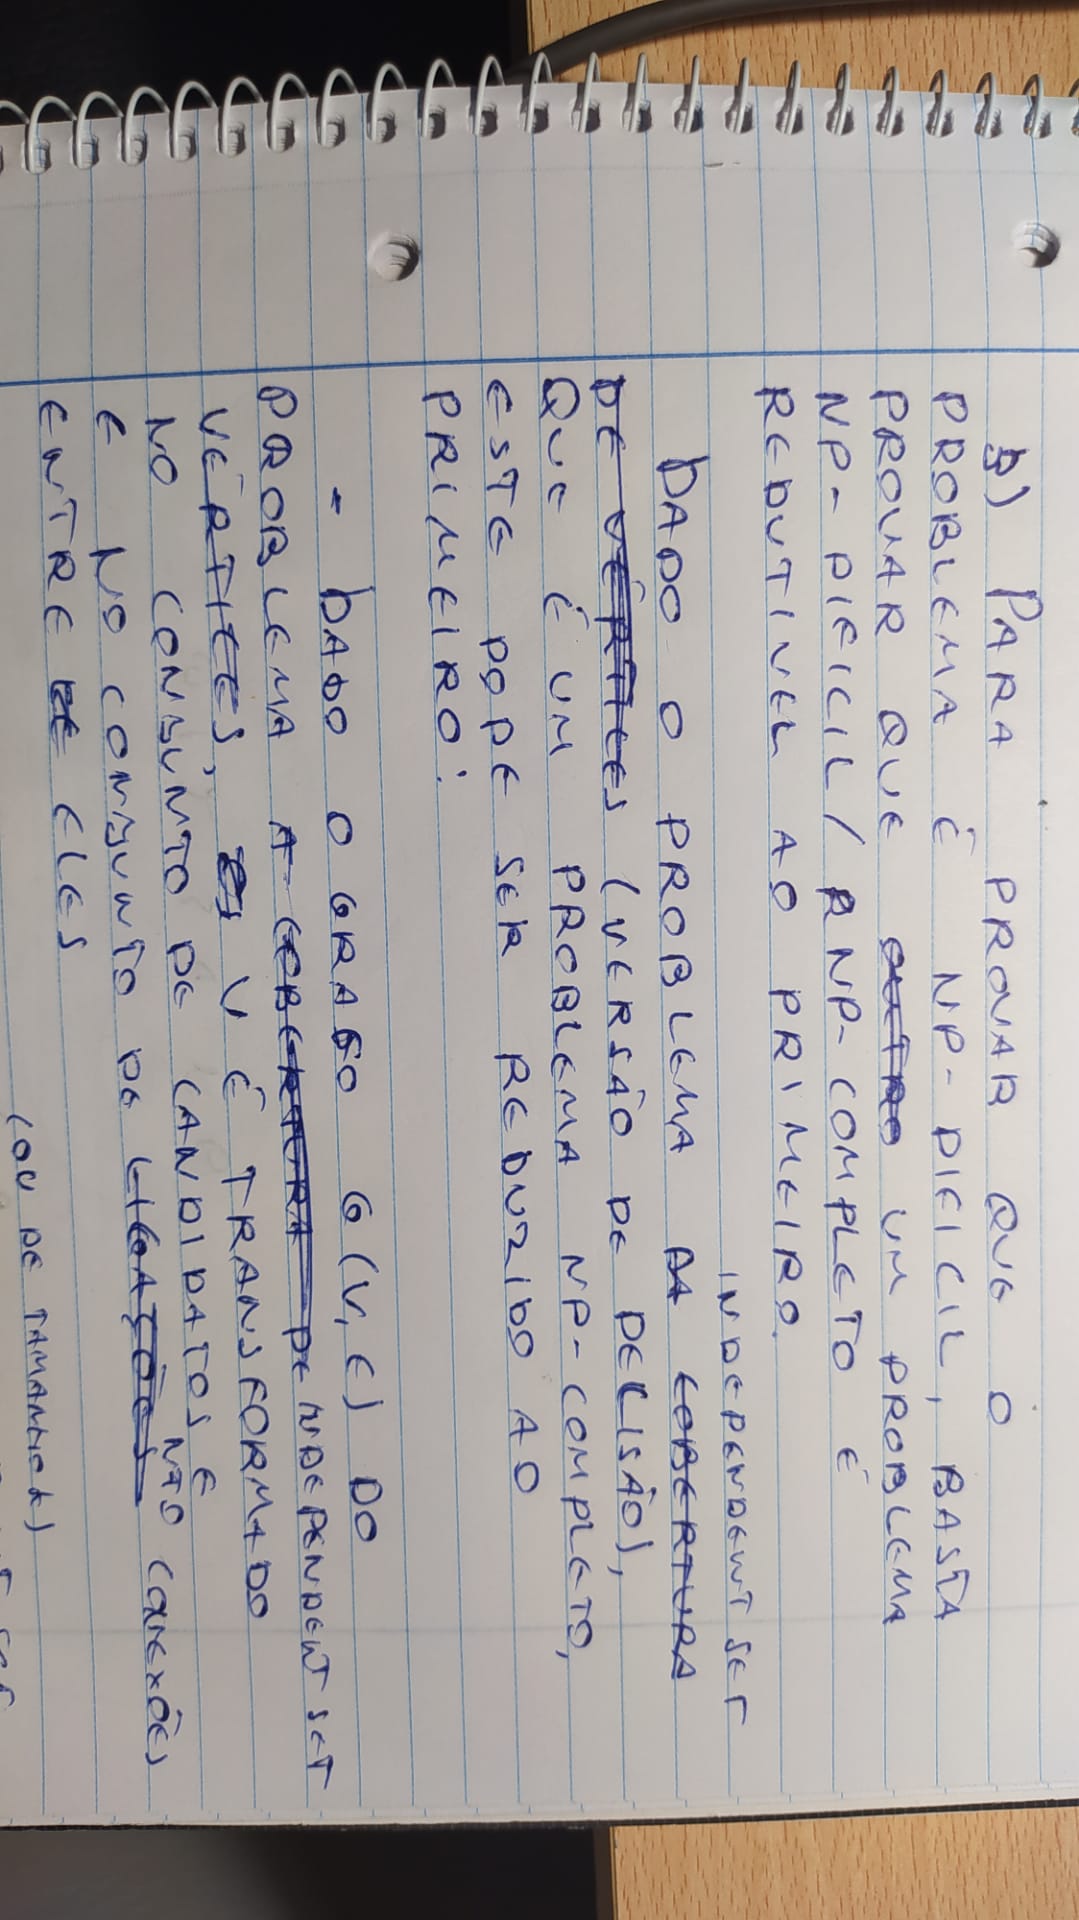 b) PARA PROVAR QUE O
PROBLEMA É NP-DIFICIL, BASTA
PROVAR QUE OUTRO UM PROBLEMA
NP-DIFICIL/ NP-COMPLETO É
REDUTIVEL AO PRIMEIRO.
INDEPENDENT SET
DADO O PROBLEMA DA COBERTURA
DE VÉRTICES (VERSÃO DE DECISÃO),
QUE É UM PROBLEMA NP-COMPLETO,
ESTE PODE SER REDUZIDO AO
PRIMEIRO:
- DADO O GRAFO G(V,E) DO
PROBLEMA A COBERTURA DE INDEPENDENT SET
VÉRTICES, V É TRANSFORMADO
NO CONJUNTO DE CANDIDATOS E
E NO CONJUNTO DE LIGAÇÕES NÃO CONEXÕES
ENTRE ELES
(OU DE TAMANHO K)